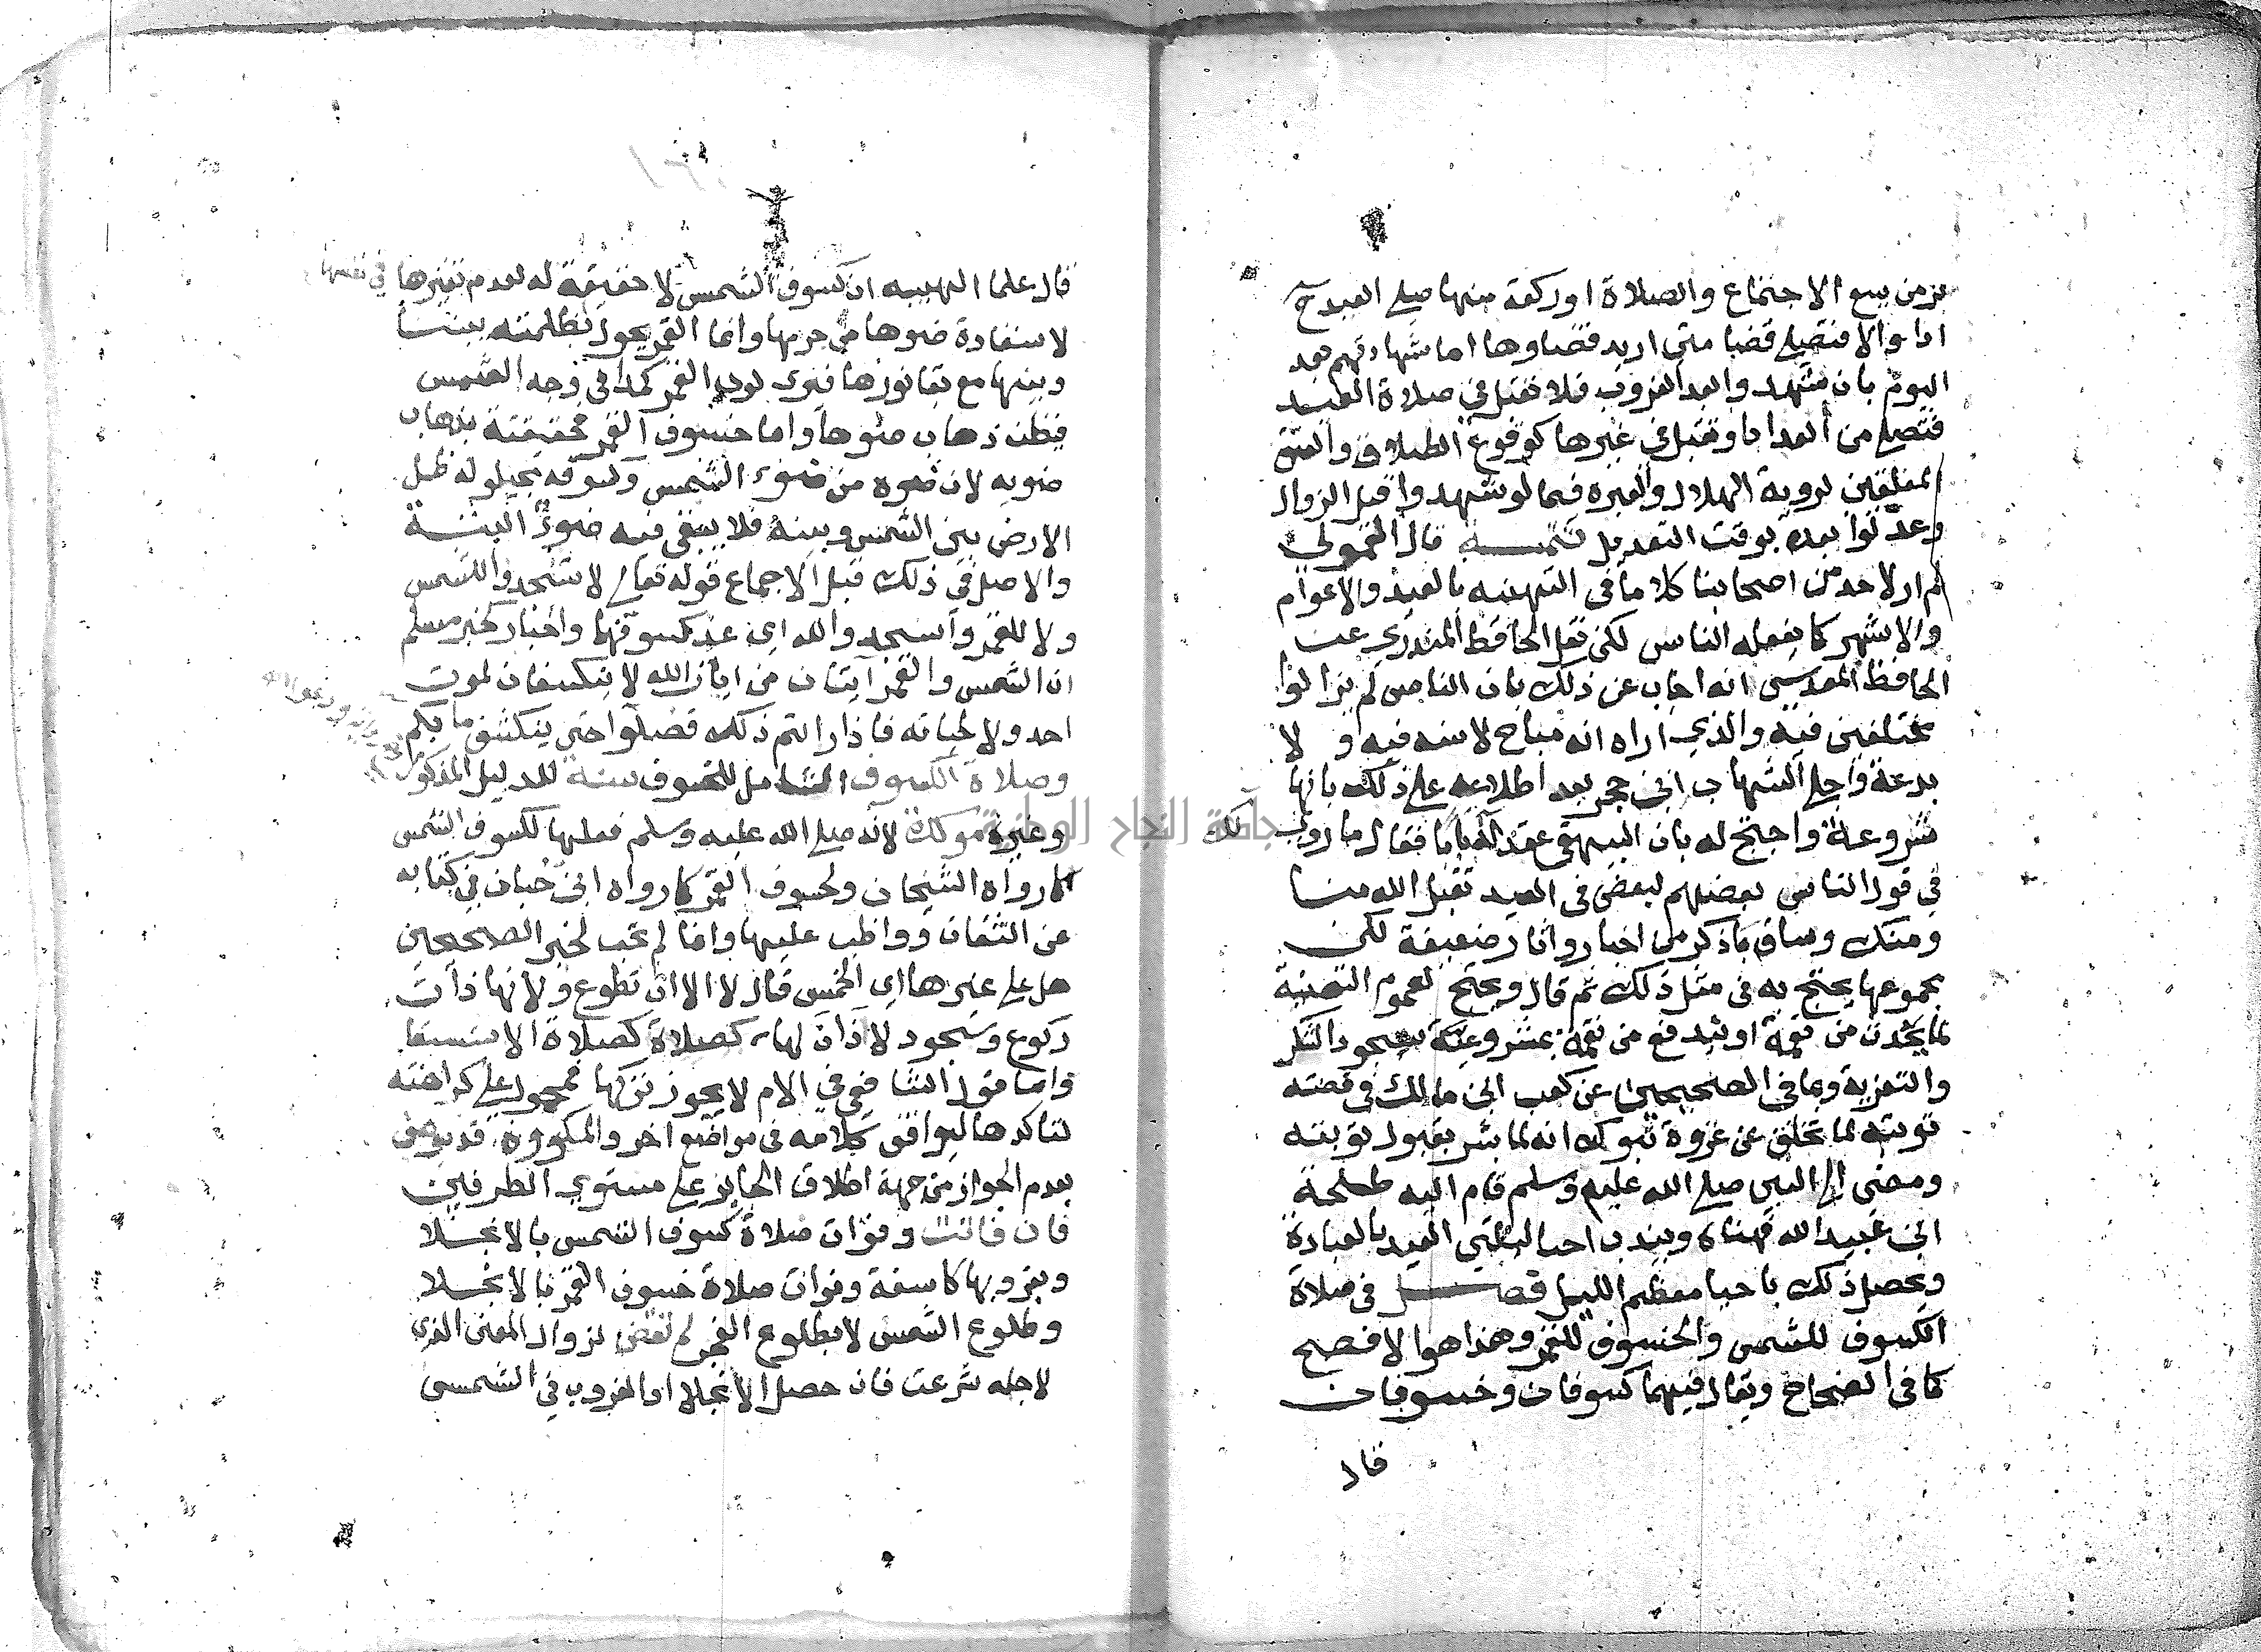 بزمن يسع الاجتماع والصلاة او ركعة منها صلى العيد ح
اداء والا فتصلى قضا متى اريد قضاوها اما شهادتهم بعد
اليوم بان شهدوا بعد الغروب فلا تقبل في صلاة العيد
فتصلى من الغد ادا وتقبل في غيرها كوقوع الطلاق والعتق
المعلقين لروية الهلال والعبرة فيما لو شهدوا قبل الزوال
وعدلوا بعده بوقت التعديل تتمــة قال القمولي
لم ار لاحد من اصحابنا كلاما في التهنيه بالعيد والاعوام
والاشهر كما يفعله الناس لكن نقل الحافظ المنذري عن
الحافظ المقدسي انه اجاب عن ذلك بان الناس لم يزالوا
مختلفين فيه والذي اراه انه مباح لا سنه فيه ولا
بدعة واجاب الشهاب ابن حجر بعد اطلاعه على ذلك بانها
مشروعة واحتج له بان البيهقي عقد لذلك بابا فقال ما روي
في قول الناس بعضهم لبعض في العيد تقبل الله منا
ومنك وساق ما ذكر من اخبار واثار ضعيفة لكن
مجموعها يحتج به في مثل ذلك ثم قال ويحتج لعموم التهنية
لما يحدث من نعمة او يندفع من نقمة بمشروعية سجود الشكر
والتعزية وبما في الصحيحين عن كعب ابن مالك في قصة
توبته لما تخلف عن غزوة تبوك انه لما بشر بقبول توبته
ومضى الى النبي صلى الله عليه وسلم قام اليه طلحة
ابن عبيد الله فهناه ويندب احيا ليلتي العيد بالعبادة
ويحصل ذلك باحيا معظم الليل فصــل في صلاة
الكسوف للشمس والخسوف للقمر وهذا هو الافصح
كما في الصحاح ويقال فيهما كسوفان وخسوفان
قال
قال علما الهييه ان كسوف الشمس لا حقيقة له لعدم تغيرها في نفسها
لاستفادة ضوها من جرمها وانما القمر يحول بظلمته بيننا
وبينها مع بقا نورها فيرى لون القمر كمدا في وجه الشمس
فيظن ذهاب ضوها واما خسوف القمر فحقيقة بذهاب
ضويه لان ضوه من ضوء الشمس وكسوفه بحيلولة ظل
الارض بين الشمس وبينه فلا يبقى فيه ضوء البتة
والاصل في ذلك قبل الاجماع قوله تعالى لا تسجدوا للشمس
ولا للقمر واسجدوا لله اي عند كسوفهما واخبار كخبر مسلم
ان الشمس والقمر آيتان من ايات الله لا ينكسفان لموت
احد ولا لحياته فاذا رايتم ذلك فصلوا حتى ينكشف ما بكم
وصلاة الكسوف الشامل للخسوف سنة للدليل المذكور
وغيره موكدة لانه صلى الله عليه وسلم فعلها لكسوف الشمس
كما رواه الشيخان ولخسوف القمر كما رواه ابن حبان في كتابه
عن الثقات وواظب عليها وانما لم تجب لخبر الصحيحين
هل علي غيرها اي الخمس قال لا الا ان تطوع ولانها ذات
ركوع وسجود لا اذان لها كصلاة الاستسقا
واما قول الشافعي في الام لا يجوز تركها فمحمول على كراهته
لتاكدها ليوافق كلامه في مواضع اخر والمكروه قد يوصف
بعدم الجواز من جهة اطلاق الجايز على مستوي الطرفين
فان فاتت وفوات صلاة كسوف الشمس بالانجلا
وبغروبها كاسفة وفوات صلاة خسوف القمر بالانجلا
وطلوع الشمس لا بطلوع الفجر لم تقض لزوال المعنى الذي
لاجله شرعت فان حصل الانجلا او الغروب في الشمس
جامعة النجاح الوطنية